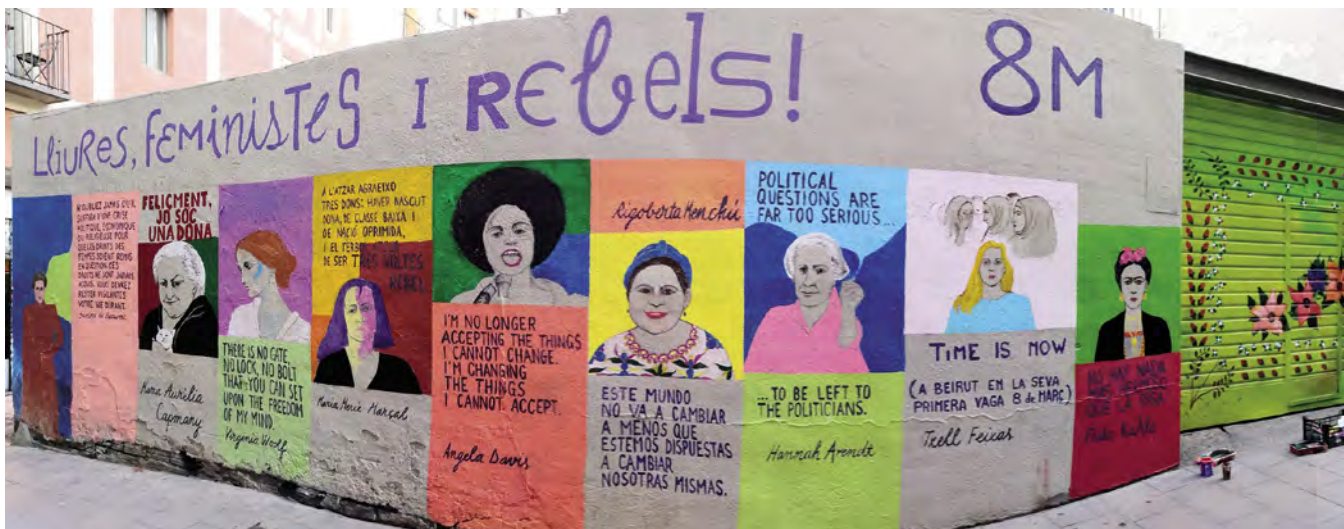 LLiURes, FEMiNisTeS I REbels! 8M
N'OUBLIEZ JAMAIS QU'IL
SUFFIRA D'UNE CRISE
POLITIQUE, ÉCONOMIQUE
OU RELIGIEUSE POUR
QUE LES DROITS DES
FEMMES SOIENT REMIS
EN QUESTION. CES
DROITS NE SONT JAMAIS
ACQUIS. VOUS DEVREZ
RESTER VIGILANTES
VOTRE VIE DURANT.
Simone de Beauvoir
FELIÇMENT,
JO SÓC
UNA DONA
Maria Aurèlia
Capmany
THERE IS NO GATE,
NO LOCK, NO BOLT
THAT YOU CAN SET
UPON THE FREEDOM
OF MY MIND.
Virginia Woolf
A L'ATZAR AGRAEIXO
TRES DONS: HAVER NASCUT
DONA, DE CLASSE BAIXA I
DE NACIÓ OPRIMIDA,
I EL TÈRBOL
DE SER TRES VOLTES
REBEL
Maria Mercè Marçal
I'M NO LONGER
ACCEPTING THE THINGS
I CANNOT CHANGE.
I'M CHANGING
THE THINGS
I CANNOT ACCEPT.
Angela Davis
Rigoberta Menchú
ESTE MUNDO
NO VA A CAMBIAR
A MENOS QUE
ESTEMOS DISPUESTAS
A CAMBIAR
NOSOTRAS MISMAS.
POLITICAL
QUESTIONS ARE
FAR TOO SERIOUS...
...TO BE LEFT TO
THE POLITICIANS.
Hannah Arendt
TIME IS NOW
(A BEIRUT EN LA SEVA
PRIMERA VAGA 8 de MARÇ)
Trell Feicas
NO HAY NADA
MÁS HERMOSO
QUE LA RISA
Frida Kahlo